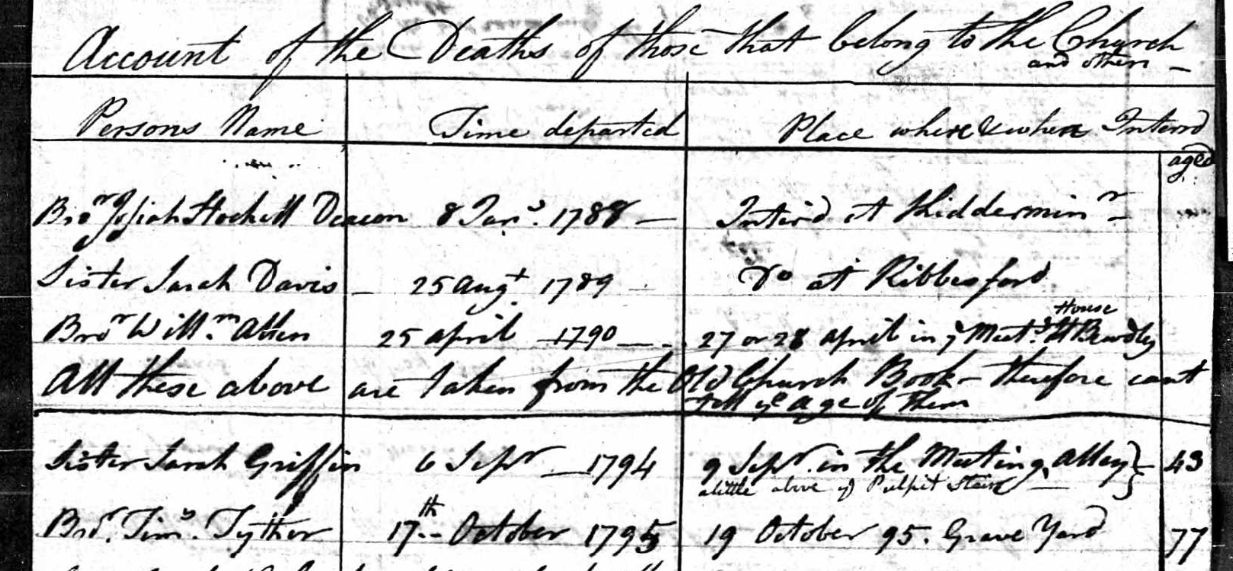 Account of the Deaths of those that belong to the Church
and others —
Persons Name Time departed Place where & when Interrd
aged
Bror Josiah Hockett Deacon 8 Jany. 1788 — Interd at Kidderminr —
Sister Sarah Davis — 25 Augt 1789 — Do at Ribbesford
House
Bror Willm. Allen 25 april — 1790 — 27 or 28 april in ye Meetg. At Bewdley
All these above are taken from the Old Church Book — therefore cant
tell ye age of them
Sister Sarah Griffin 6 Sepr — 1794 9 Sepr. in the Meeting Alley } — 43
a little above ye Pulpit Stairs —
Bror. Timy. Tyther 17th — October 1795 19 October 95. Grave Yard 77